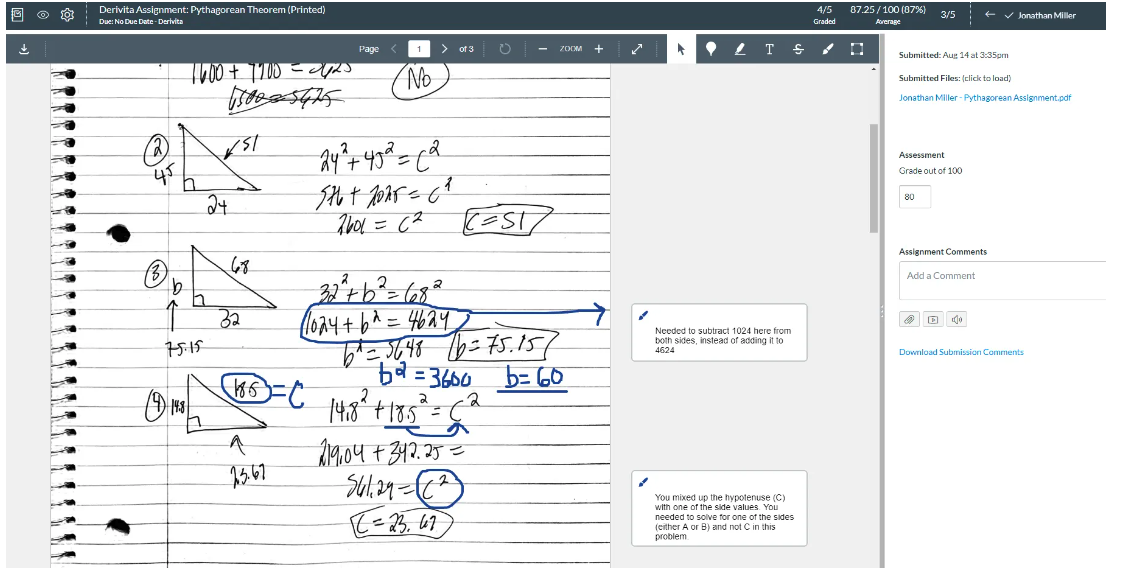 Derivita Assignment: Pythagorean Theorem (Printed)
Due: No Due Date - Derivita
4/5
Graded
87.25 / 100 (87%)
Average
3/5
Jonathan Miller
Page 1 of 3
ZOOM
T
S
1600 + 4100 = 5625
No
6500 = 5625
2
45
51
24
24² + 45² = C²
576 + 2025 = C²
2601 = C²
C = 51
3
b
68
32
75.15
32² + b² = 68²
1024 + b² = 4624
b² = 5648
b = 75.15
b² = 3600
b = 60
4
14.8
18.5 = C
23.67
14.8² + 18.5² = C²
219.04 + 342.25 =
561.29 = C²
C = 23.67
Needed to subtract 1024 here from
both sides, instead of adding it to
4624
You mixed up the hypotenuse (C)
with one of the side values. You
needed to solve for one of the sides
(either A or B) and not C in this
problem.
Submitted: Aug 14 at 3:35pm
Submitted Files: (click to load)
Jonathan Miller - Pythagorean Assignment.pdf
Assessment
Grade out of 100
80
Assignment Comments
Add a Comment
Download Submission Comments